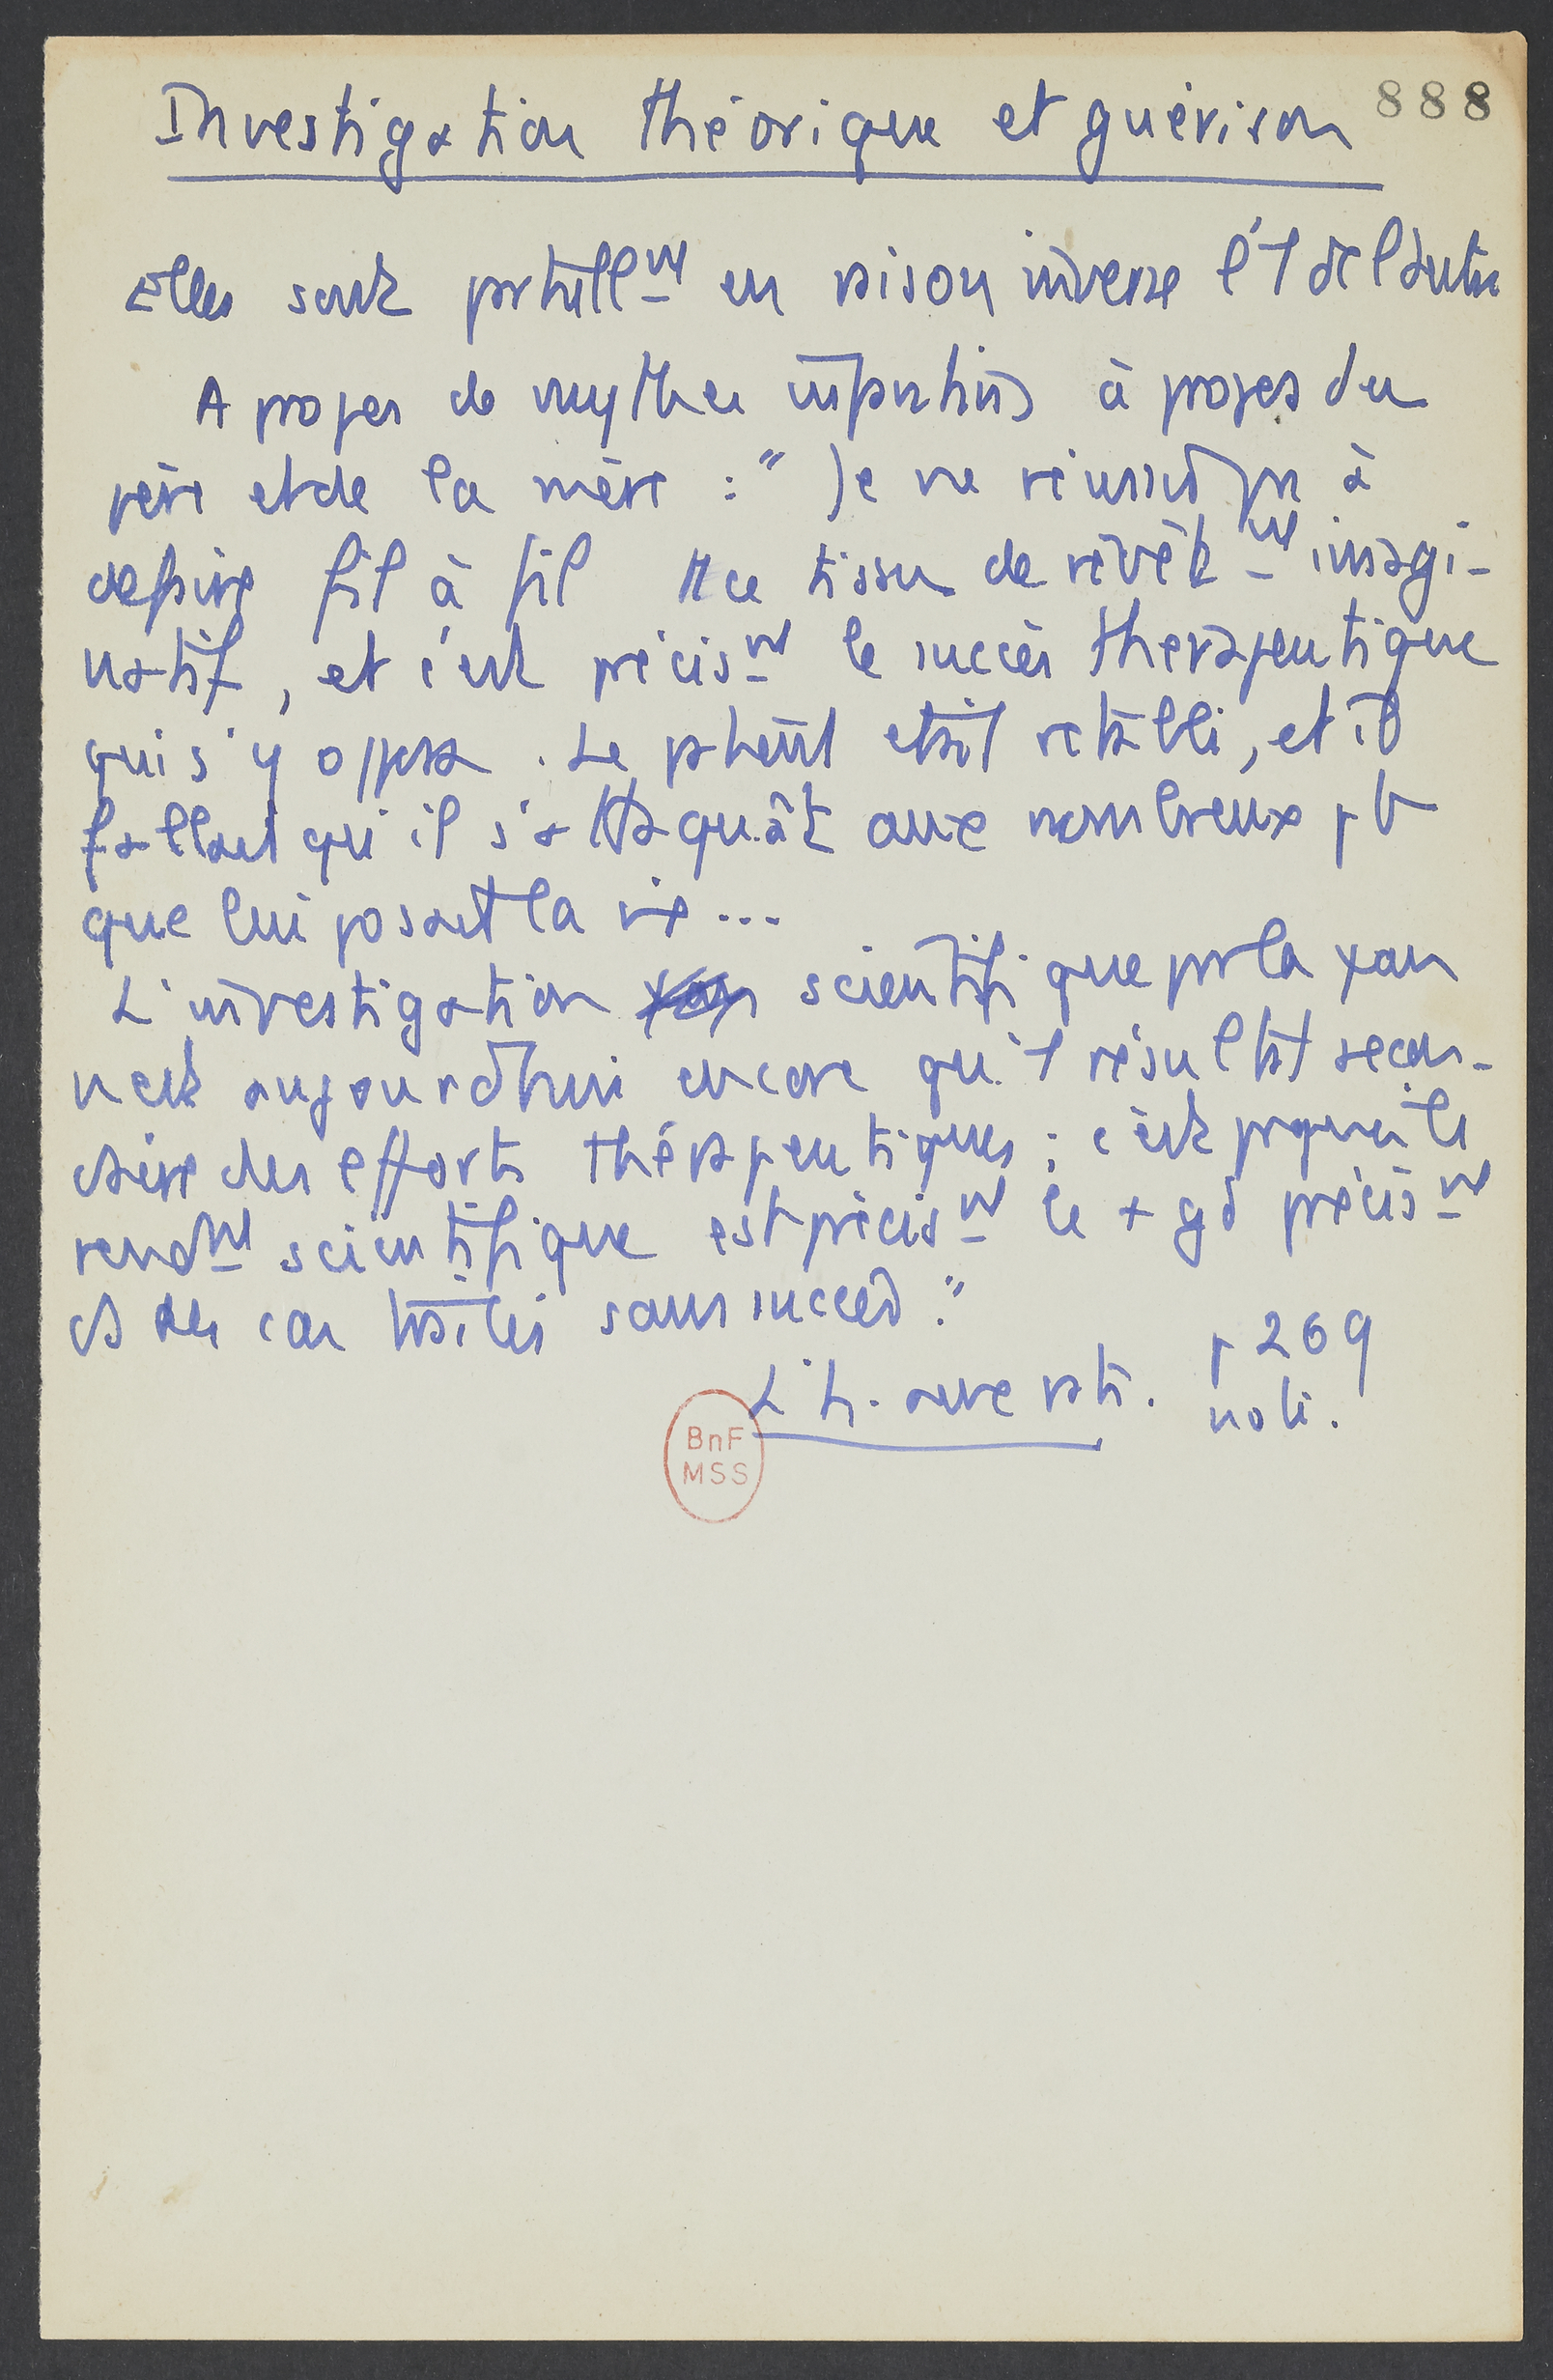 888
Investigation théorique et guérison
Elles sont partiell^mt en raison inverse l'1 de l'autre
A propos de mythes infantins à propos du
père et de la mère : " Je ne réussis pas à
defaire fil à fil tt ce tissu de revêt^mt imagi-
natif, et c'est précis^mt le succès therapeutique
qui s'y opposa. Le patient était rétabli, et il
fallait qu'il s'attaquât aux nombreux pb
que lui posait la vie ...
L'investigation scientifique par la ψan
n'est aujourd'hui encore qu'1 résultat secon-
daire des efforts thérapeutiques ; c'est pourquoi le
rend^mt scientifique est précis^mt le + gd précis^mt
ds des cas traités sans succès."
L'h. aux rats. p 269
note.
BnF
MSS